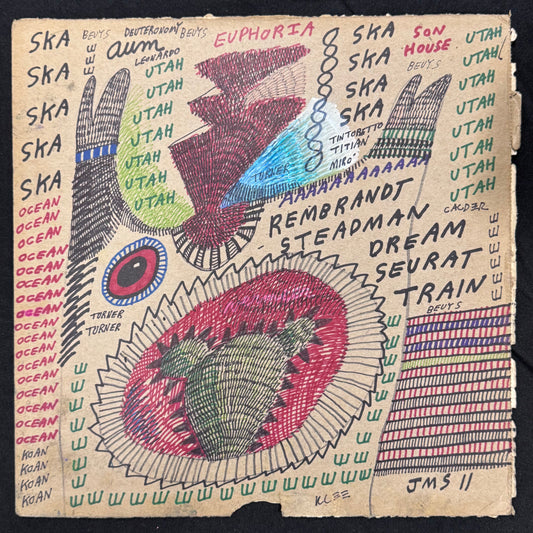 SKA
SKA
SKA
SKA
SKA
BEUYS
DEUTERONOMY
BEUYS
aum
LEONARDO
EUPHORIA
UTAH
UTAH
UTAH
UTAH
UTAH
UTAH
UTAH
TURNER
SKA
SKA
SKA
SKA
TINTORETTO
TITIAN
MIRO
SON
HOUSE
BEUYS
UTAH
UTAH
UTAH
UTAH
UTAH
UTAH
UTAH
UTAH
CALDER
AAAAAAAAAAAA
REMBRANDT
STEADMAN
DREAM
SEURAT
TRAIN
BEUYS
OCEAN
OCEAN
OCEAN
OCEAN
OCEAN
OCEAN
OCEAN
OCEAN
OCEAN
OCEAN
OCEAN
OCEAN
OCEAN
OCEAN
KOAN
KOAN
KOAN
KOAN
TURNER
TURNER
KLEE
JMS 11